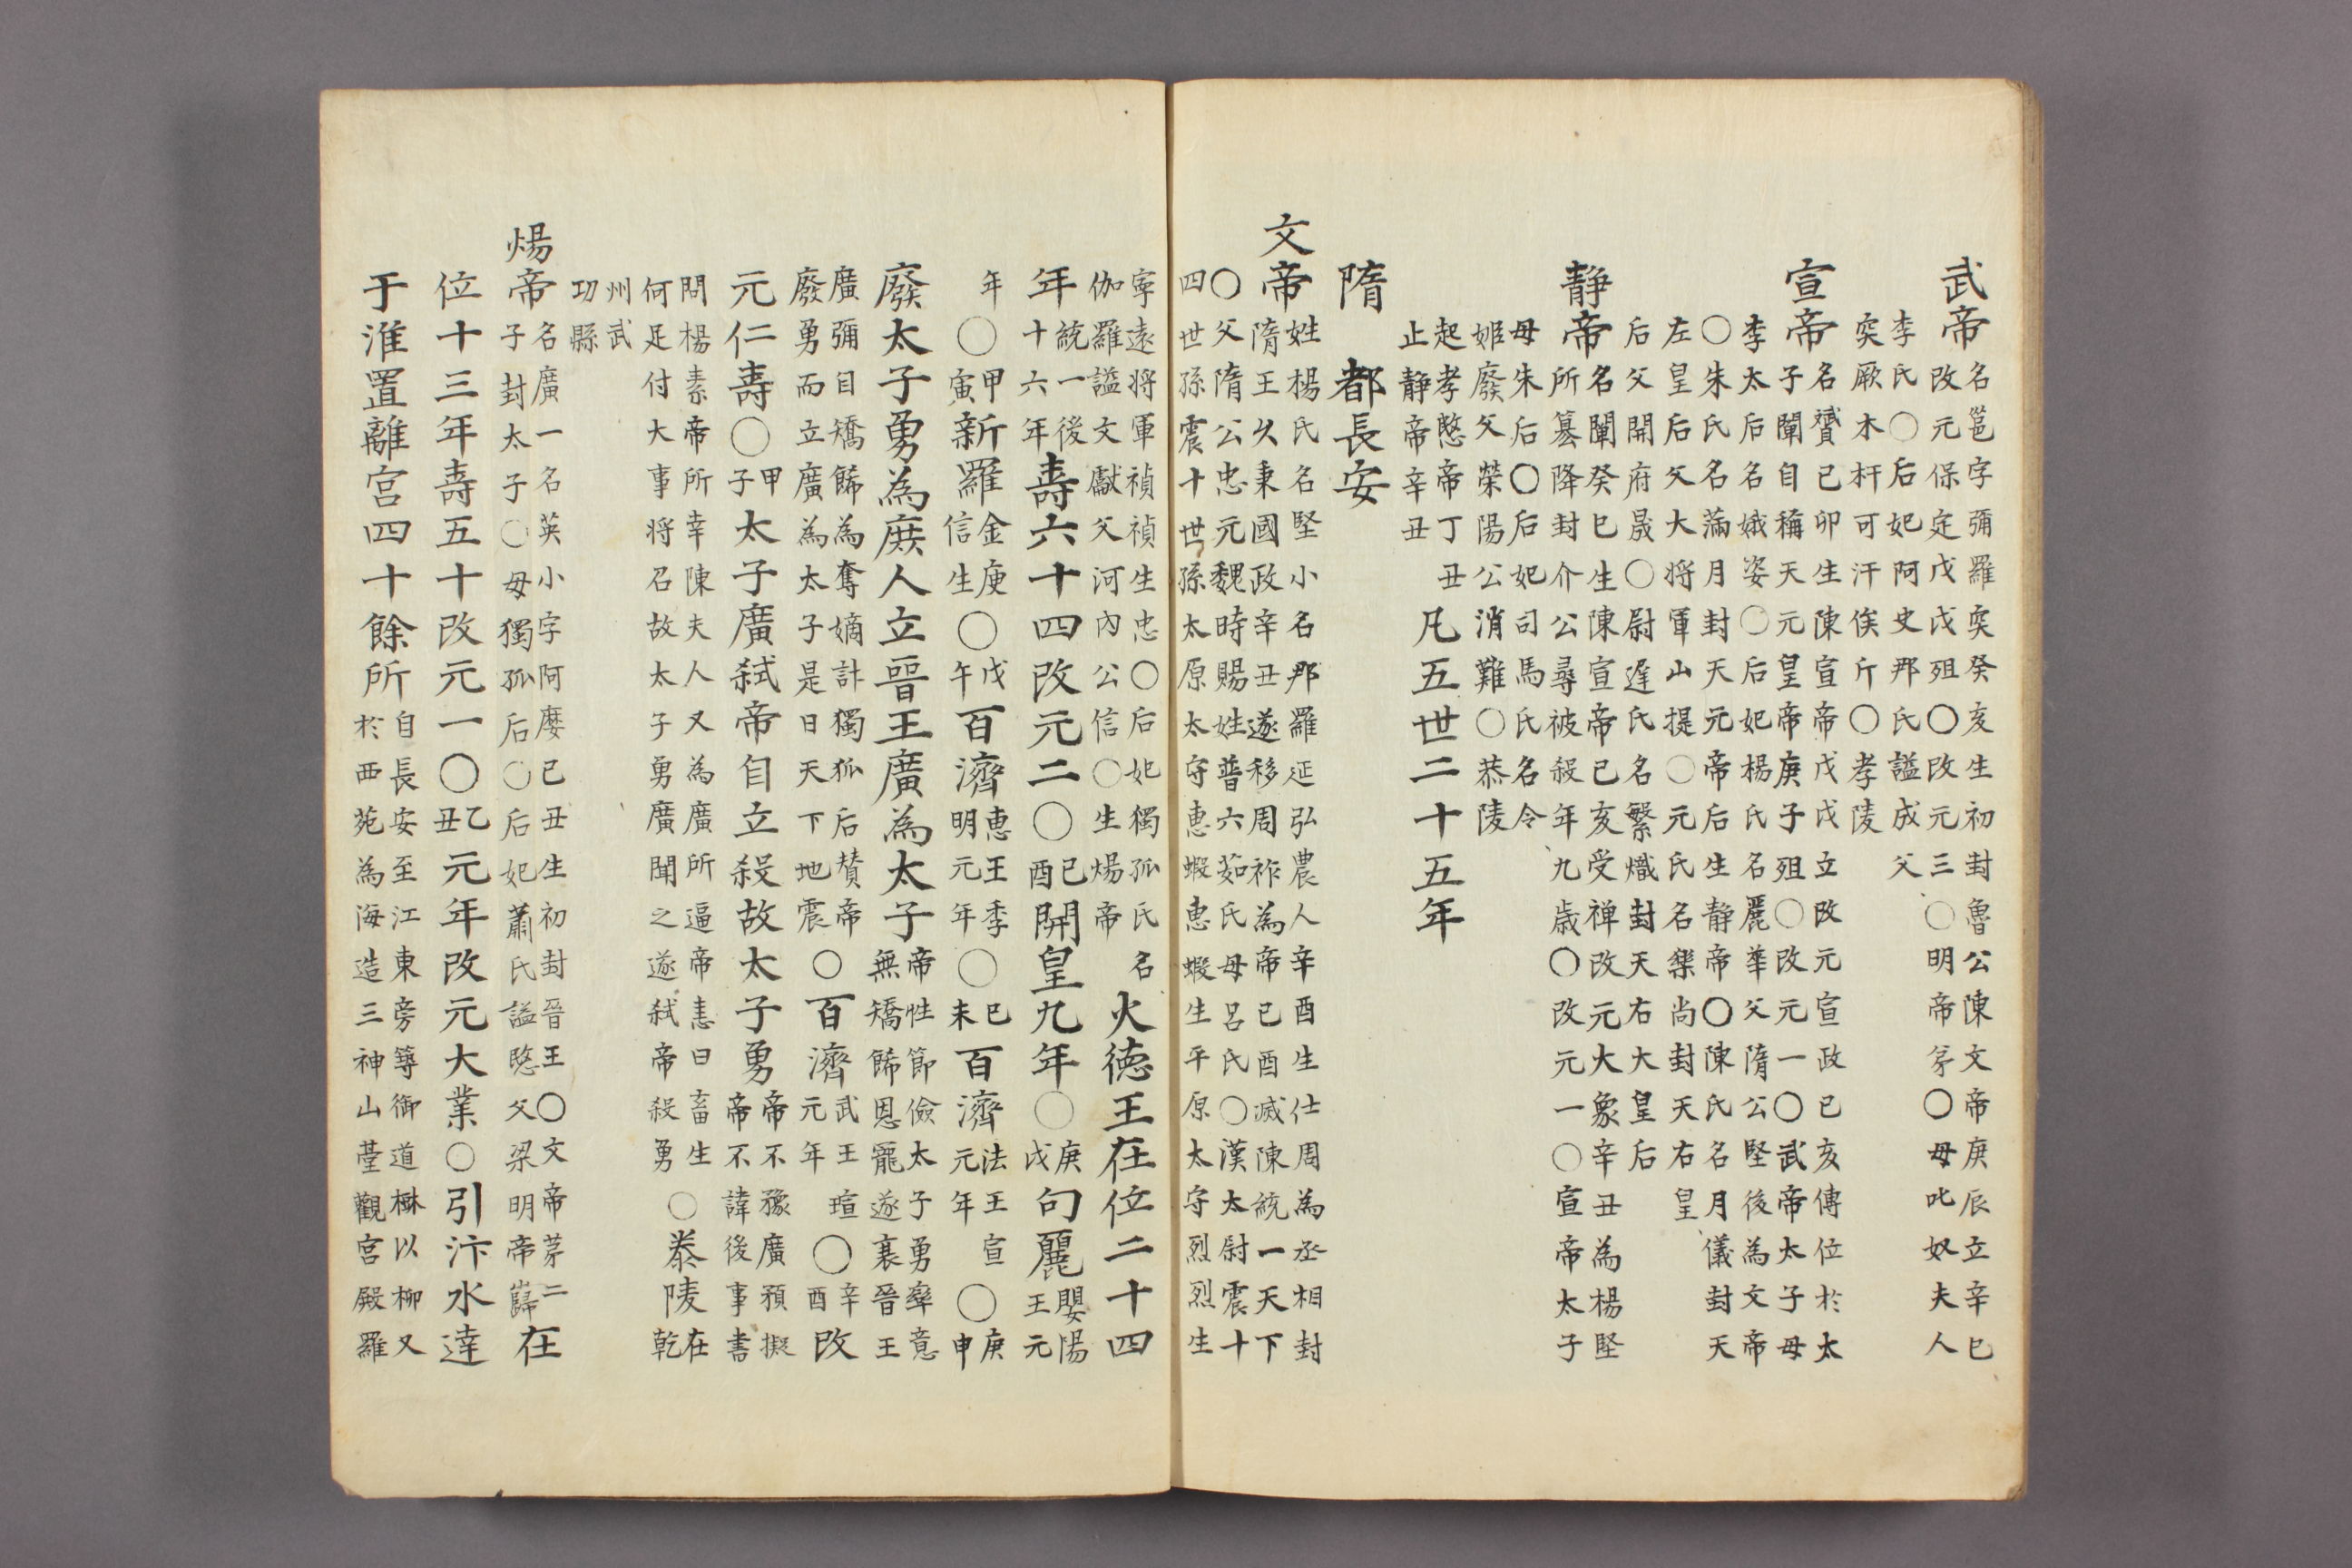 武帝
名邕字彌羅突癸亥生初封魯公陳文帝庚辰立辛巳
改元保定戊戌殂〇改元三〇明帝弟〇母叱奴夫人
李氏〇后妃阿史那氏謚成父
突厥木杆可汗俟斤〇孝陵
宣帝
名贇己卯生陳宣帝戊戌立改元宣政己亥傳位於太
子闡自稱天元皇帝庚子殂〇改元一〇武帝太子母
李太后名娥姿〇后妃楊氏名麗華父隋公堅後為文帝
〇朱氏名滿月封天元帝后生静帝〇陳氏名月儀封天
左皇后父大将軍山提〇元氏名樂尚封天右皇
后父開府晟〇尉遅氏名繁熾封天右大皇后
静帝
名闡癸巳生陳宣帝己亥受禅改元大象辛丑為楊堅
所簒降封介公尋被殺年九歳〇改元一〇宣帝太子
母朱后〇后妃司馬氏名令
姫廢父榮陽公消難〇恭陵
起孝愍帝丁丑
止静帝辛丑
凡五世二十五年
隋 都長安
文帝
姓楊氏名堅小名那羅延弘農人辛酉生仕周為丞相封
隋王久秉國政辛丑遂移周祚為帝已酉滅陳統一天下
〇父隋公忠元魏時賜姓普六茹氏母呂氏〇漢太尉震十
四世孫震十世孫太原太守惠蝦惠蝦生平原太守烈烈生
寧遠将軍禎禎生忠〇后妃獨孤氏名
伽羅謚文獻父河內公信〇生煬帝
火德王在位二十四
年
統一後
十六年
壽六十四改元二〇
已
酉
開皇九年〇
庚
戌
句麗
嬰陽
王元
年
〇
甲
寅
新羅
金庾
信生
〇
戊
午
百濟
惠王季
明元年
〇
已
未
百濟
法王宣
元年
〇
庚
申
廢太子勇為庶人立晉王廣為太子
帝性節儉太子勇率意
無矯餙恩寵遂衰晉王
廣彌自矯餙為奪嫡計獨狐后賛帝
廢勇而立廣為太子是日天下地震
〇百濟
武王璋
元年
〇
辛
酉
改
元仁壽〇
甲
子
太子廣弑帝自立殺故太子勇
帝不豫廣預擬
帝不諱後事書
問楊素帝所幸陳夫人又為廣所逼帝恚曰畜生
何足付大事将召故太子勇廣聞之遂弑帝殺勇
〇㤗陵
在
乾
州武
功縣
煬帝
名廣一名英小字阿㜷已丑生初封晉王〇文帝苐二
子封太子〇母獨孤后〇后妃蕭氏謚愍父梁明帝巋
在
位十三年壽五十改元一〇
乙
丑
元年改元大業〇引汴水達
于淮置離宮四十餘所
自長安至江東旁築御道樹以柳又
於西苑為海造三神山䑓觀宮殿羅